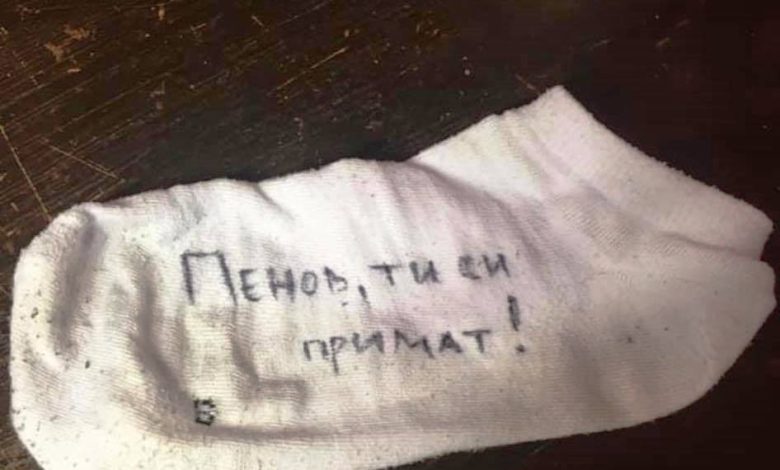 Пенов, ти си
примат!